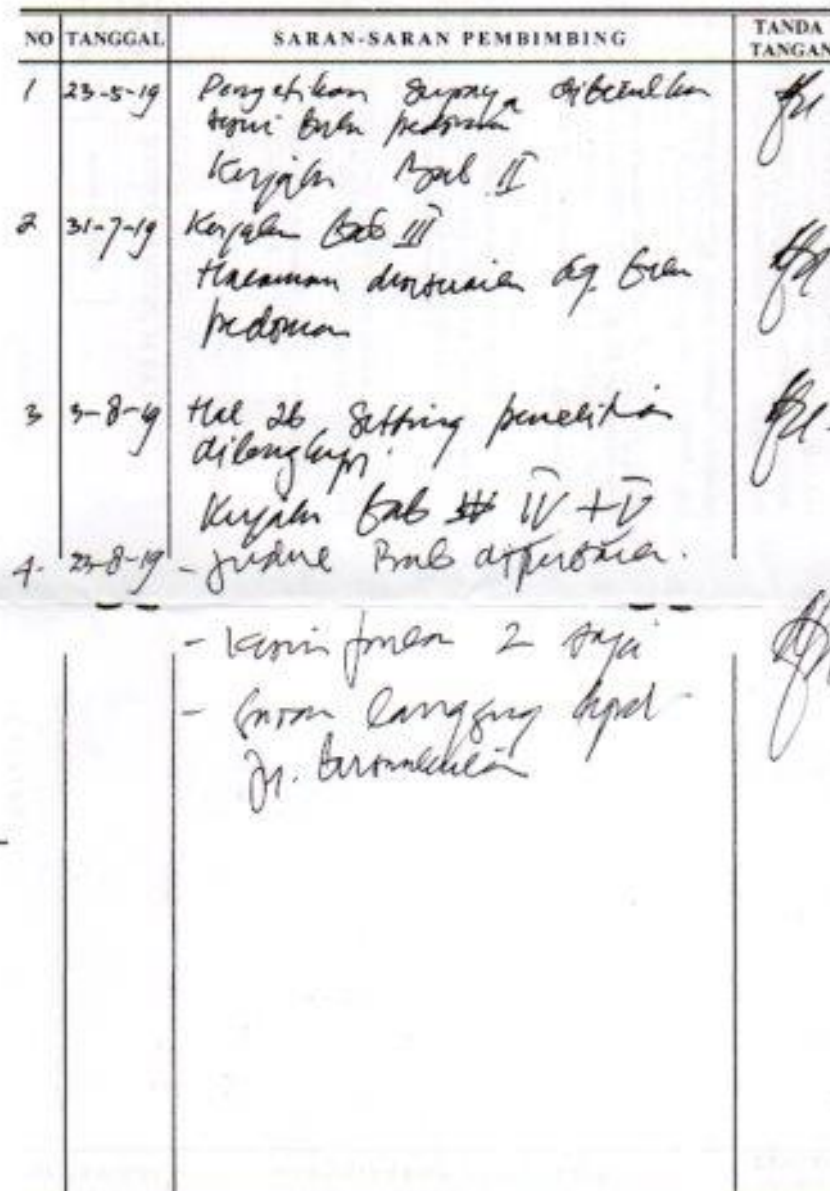 NO TANGGAL SARAN-SARAN PEMBIMBING TANDA TANGAN
1 23-5-19 Pengetikan supaya dibetulkan
sesuai buku pedoman
Kerjakan Bab II
2 31-7-19 Kerjakan Bab III
Halaman disesuaikan dg buku
pedoman
3 3-8-19 Hal 26 Setting penelitian
dilengkapi.
Kerjakan Bab IV + V
4. 23-8-19 - Judul Bab
- 2 saja
- Saran langsung